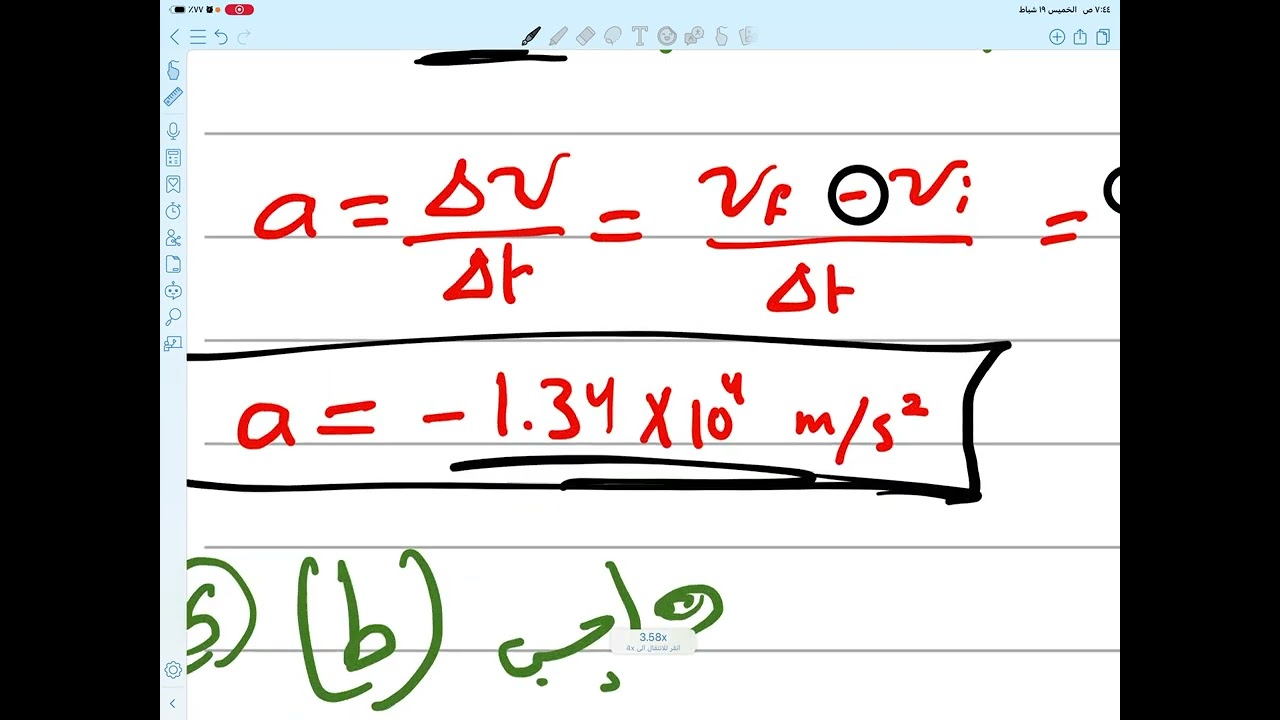 ٧:٤٤ ص الخميس ١٩ شباط
٪٧٧
a = Δv/Δt = vf - vi/Δt =
a = -1.34 × 10⁴ m/s²
(b)
3.58x
انقر للانتقال الى 4x